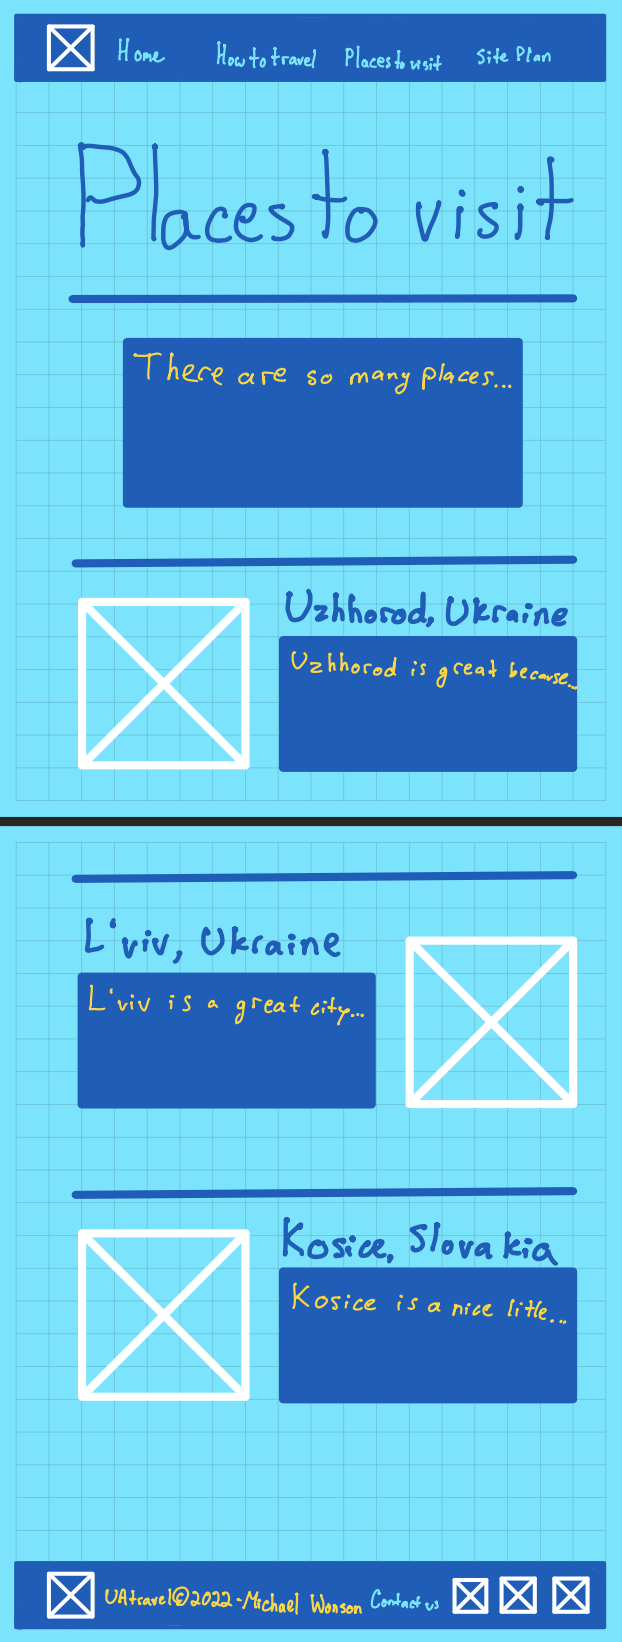 Home How to travel Places to visit Site Plan
Places to visit
There are so many places...
Uzhhorod, Ukraine
Uzhhorod is great because...
L'viv, Ukraine
L'viv is a great city...
Kosice, Slovakia
Kosice is a nice little...
UAtravel©2022-Michael Wonson Contact us